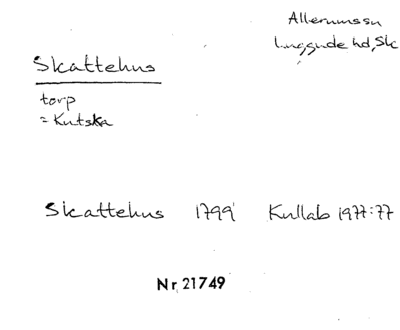 Allerums sn
Luggude hd, Sk
Skattehus
torp
= Kutska
Skattehus 1799 Kullab 1977:77
Nr 21749